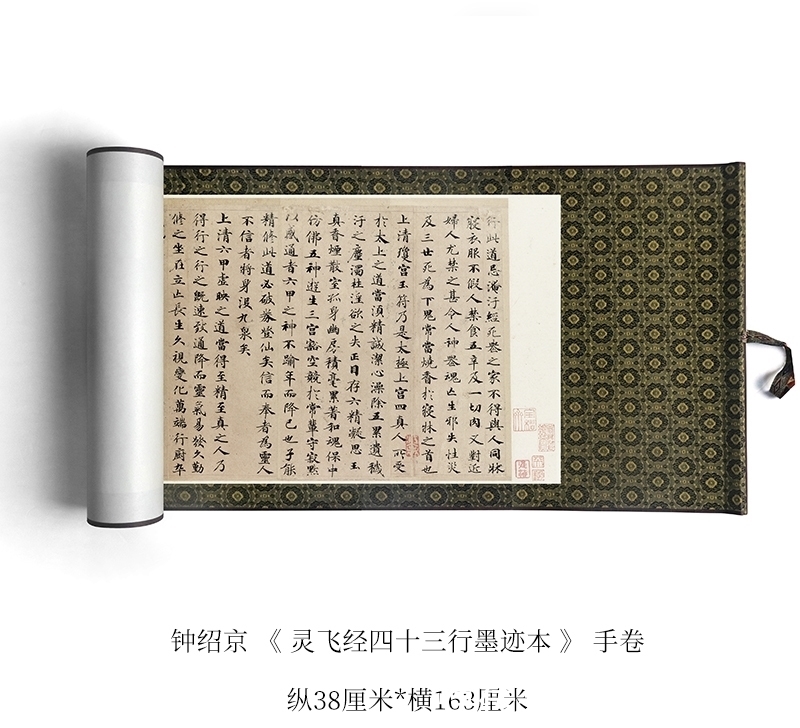 行此道忌淹汙經死喪之家不得與人同牀
寢衣服不假人禁食五辛及一切肉又對近
婦人尤禁之甚令人神喪魂亡生邪失性災
及三世死為下鬼常當燒香於寢牀之首也
上清瓊宮玉符乃是太極上宮四真人所受
於太上之道當須精誠潔心澡除五累遺穢
汙之塵濁杜淫欲之失正目存六精凝思玉
真香煙散室孤身幽房積毫累著和魂保中
仿佛五神遊生三宮豁空競於常輩守寂默
以感通者六甲之神不踰年而降己也子能
精修此道必破券登仙矣信而奉者為靈人
不信者將身沒九泉矣
上清六甲虛映之道當得至精至真之人乃
得行之行之既速致通降而靈氣易發久勤
修之坐在立亡長生久視變化萬端行廚卒
钟绍京 《 灵飞经四十三行墨迹本 》 手卷
纵38厘米*横163厘米